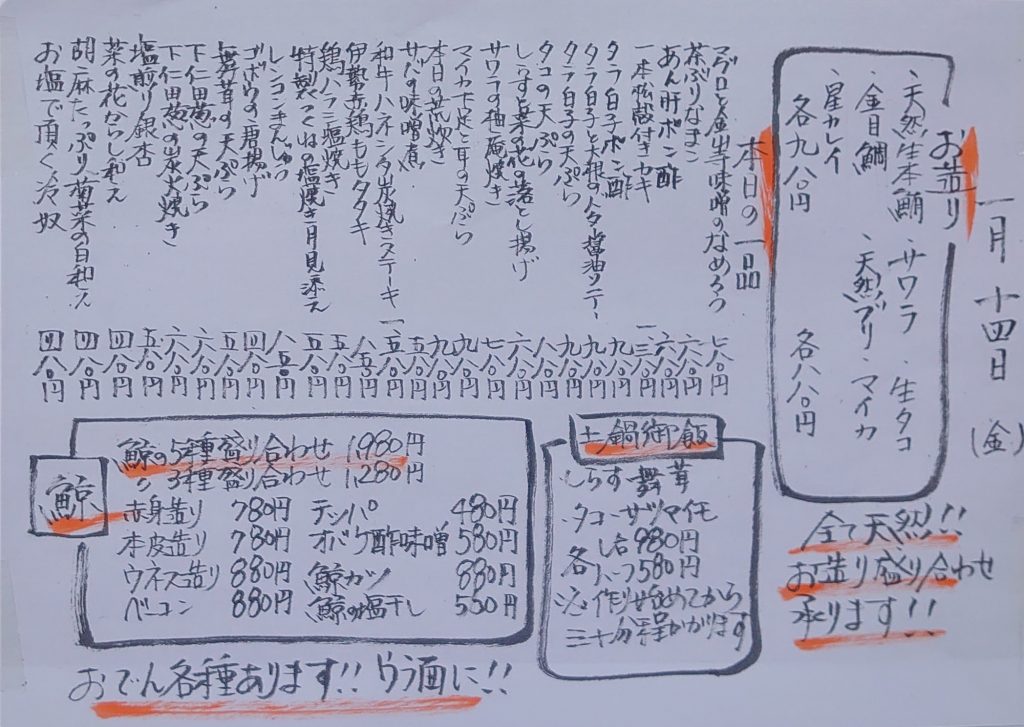 一月十四日(金)
お造り
・天然生本鮪
・金目鯛
・星カレイ
各九八〇円
・サワラ ・生タコ
・天然ブリ ・マイカ
各八八〇円
全て天然!!
お造り盛り合わせ
承ります!!
本日の一品
マグロと金山寺味噌のなめろう 七八〇円
茶ぶりなまこ 六八〇円
あん肝ポン酢 六八〇円
一本松殻付きカキ
タラ白子ポン酢 九八〇円
タラ白子と大根のバター醤油ソテー 九八〇円
タラ白子の天ぷら 九八〇円
タコの天ぷら 八八〇円
しらすと菜の花の落とし揚げ 六八〇円
サワラの柚庵焼き 七八〇円
マイカ下足と耳の天ぷら 九八〇円
本日の荒炊き 九八〇円
サバの味噌煮 五八〇円
和牛ハネシタ炭焼きステーキ 一五八〇円
伊勢赤鶏ももタタキ 八五〇円
鶏ハラミ塩焼き 五八〇円
特製つくねの塩焼き月見添え 五八〇円
レンコンまんじゅう 八五〇円
ゴボウの唐揚げ 四八〇円
舞茸の天ぷら 五八〇円
下仁田葱の天ぷら 六八〇円
下仁田葱の炭火焼き 六八〇円
塩煎り銀杏 五八〇円
菜の花からし和え 四八〇円
胡麻たっぷり菊菜の白和え 四八〇円
お塩で頂く冷奴 四八〇円
土鍋御飯
・しらす舞茸
・タコ-サツマイモ
各1合980円
各ハーフ580円
※作り始めてから
三十分程かかります
鯨
鯨の5種盛り合わせ 1,980円
〃 3種盛り合わせ 1,280円
赤身造り 780円 テッパ 480円
本皮造り 780円 オバケ酢味噌 580円
ウネス造り 880円 鯨カツ 880円
ベーコン 880円 鯨の塩干し 550円
おでん各種あります!! ウラ面に!!